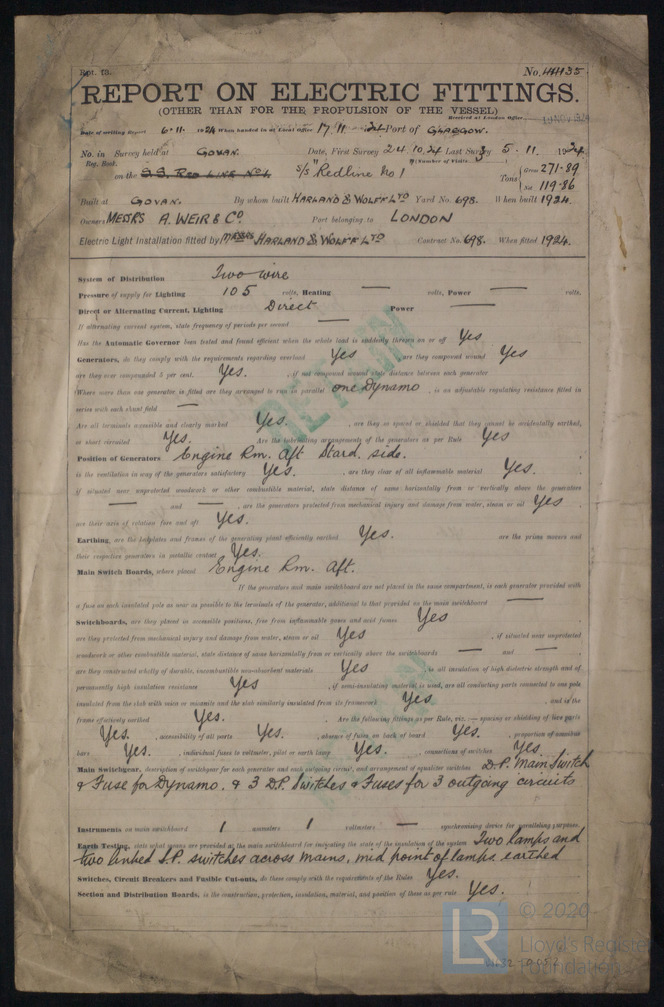 Rpt. 13. No. 44135
REPORT ON ELECTRIC FITTINGS.
(OTHER THAN FOR THE PROPULSION OF THE VESSEL)
Received at London Office
Date of writing Report 6.11. 1924 When handed in at Local Office 17.11 24 Port of GLASGOW.
No. in Survey held at GOVAN. Date, First Survey 24.10.24 Last Survey 5.11. 1924
Reg. Book. (Number of Visits 3
on the S.S. RED LINE No 1. S/S "Redline No 1 Tons Gross 271.89
Net 119.86
Built at GOVAN. By whom built HARLAND & WOLFF LTD Yard No. 698. When built 1924.
Owners MESSRS A. WEIR & CO. Port belonging to LONDON
Electric Light Installation fitted by MESSRS HARLAND & WOLFF LTD Contract No. 698. When fitted 1924.
System of Distribution Two wire
Pressure of supply for Lighting 105 volts, Heating — volts, Power — volts.
Direct or Alternating Current, Lighting Direct Power —
If alternating current system, state frequency of periods per second —
Has the Automatic Governor been tested and found efficient when the whole load is suddenly thrown on or off Yes
Generators, do they comply with the requirements regarding overload Yes , are they compound wound Yes
are they over compounded 5 per cent. Yes. , if not compound wound state distance between each generator
Where more than one generator is fitted are they arranged to run in parallel one Dynamo , is an adjustable regulating resistance fitted in
series with each shunt field —
Are all terminals accessible and clearly marked Yes. , are they so spaced or shielded that they cannot be accidentally earthed,
or short circuited Yes. Are the lubricating arrangements of the generators as per Rule Yes
Position of Generators Engine Rm. Aft Stard. side.
is the ventilation in way of the generators satisfactory Yes. , are they clear of all inflammable material Yes.
if situated near unprotected woodwork or other combustible material, state distance of same horizontally from or vertically above the generators
— and — , are the generators protected from mechanical injury and damage from water, steam or oil Yes
are their axis of rotation fore and aft Yes.
Earthing, are the bedplates and frames of the generating plant efficiently earthed Yes. are the prime movers and
their respective generators in metallic contact Yes.
Main Switch Boards, where placed Engine Rm. Aft.
If the generators and main switchboard are not placed in the same compartment, is each generator provided with
a fuse on each insulated pole as near as possible to the terminals of the generator, additional to that provided on the main switchboard —
Switchboards, are they placed in accessible positions, free from inflammable gases and acid fumes Yes
are they protected from mechanical injury and damage from water, steam or oil Yes , if situated near unprotected
woodwork or other combustible material, state distance of same horizontally from or vertically above the switchboards — and —
are they constructed wholly of durable, incombustible non-absorbent materials Yes , is all insulation of high dielectric strength and of
permanently high insulation resistance Yes , if semi-insulating material is used, are all conducting parts connected to one pole
insulated from the slab with mica or micanite and the slab similarly insulated from its framework Yes , and is the
frame effectively earthed Yes. Are the following fittings as per Rule, viz. — spacing or shielding of live parts
Yes. , accessibility of all parts Yes. , absence of fuses on back of board Yes. , proportion of omnibus
bars Yes. , individual fuses to voltmeter, pilot or earth lamp Yes. , connections of switches Yes.
Main Switchgear, description of switchgear for each generator and each outgoing circuit, and arrangement of equaliser switches D.P. Main Switch
& Fuse for Dynamo. & 3 D.P. Switches & Fuses for 3 outgoing circuits
Instruments on main switchboard 1 ammeters 1 voltmeters — synchronising device for paralleling purposes.
Earth Testing, state what means are provided at the main switchboard for indicating the state of the insulation of the system Two lamps and
two linked S.P. switches across mains, mid point of lamps earthed
Switches, Circuit Breakers and Fusible Cut-outs, do these comply with the requirements of the Rules Yes.
Section and Distribution Boards, is the construction, protection, insulation, material, and position of these as per rule Yes.
LR
© 2020
Lloyd's Register
Foundation